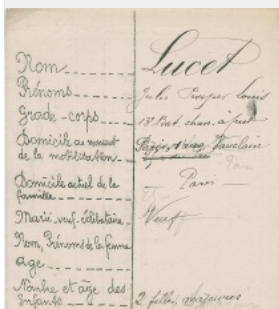 Nom Lucet
Prénoms Jules Prosper Louis
Grade - corps 13e Bat. chas. à pied
Domicile au moment
de la mobilisation Vaucluse
Domicile actuel de la
famille Paris
Marié, veuf, célibataire Veuf
Nom, Prénoms de la femme
age
Nombre et âge des
enfants 2 filles majeures